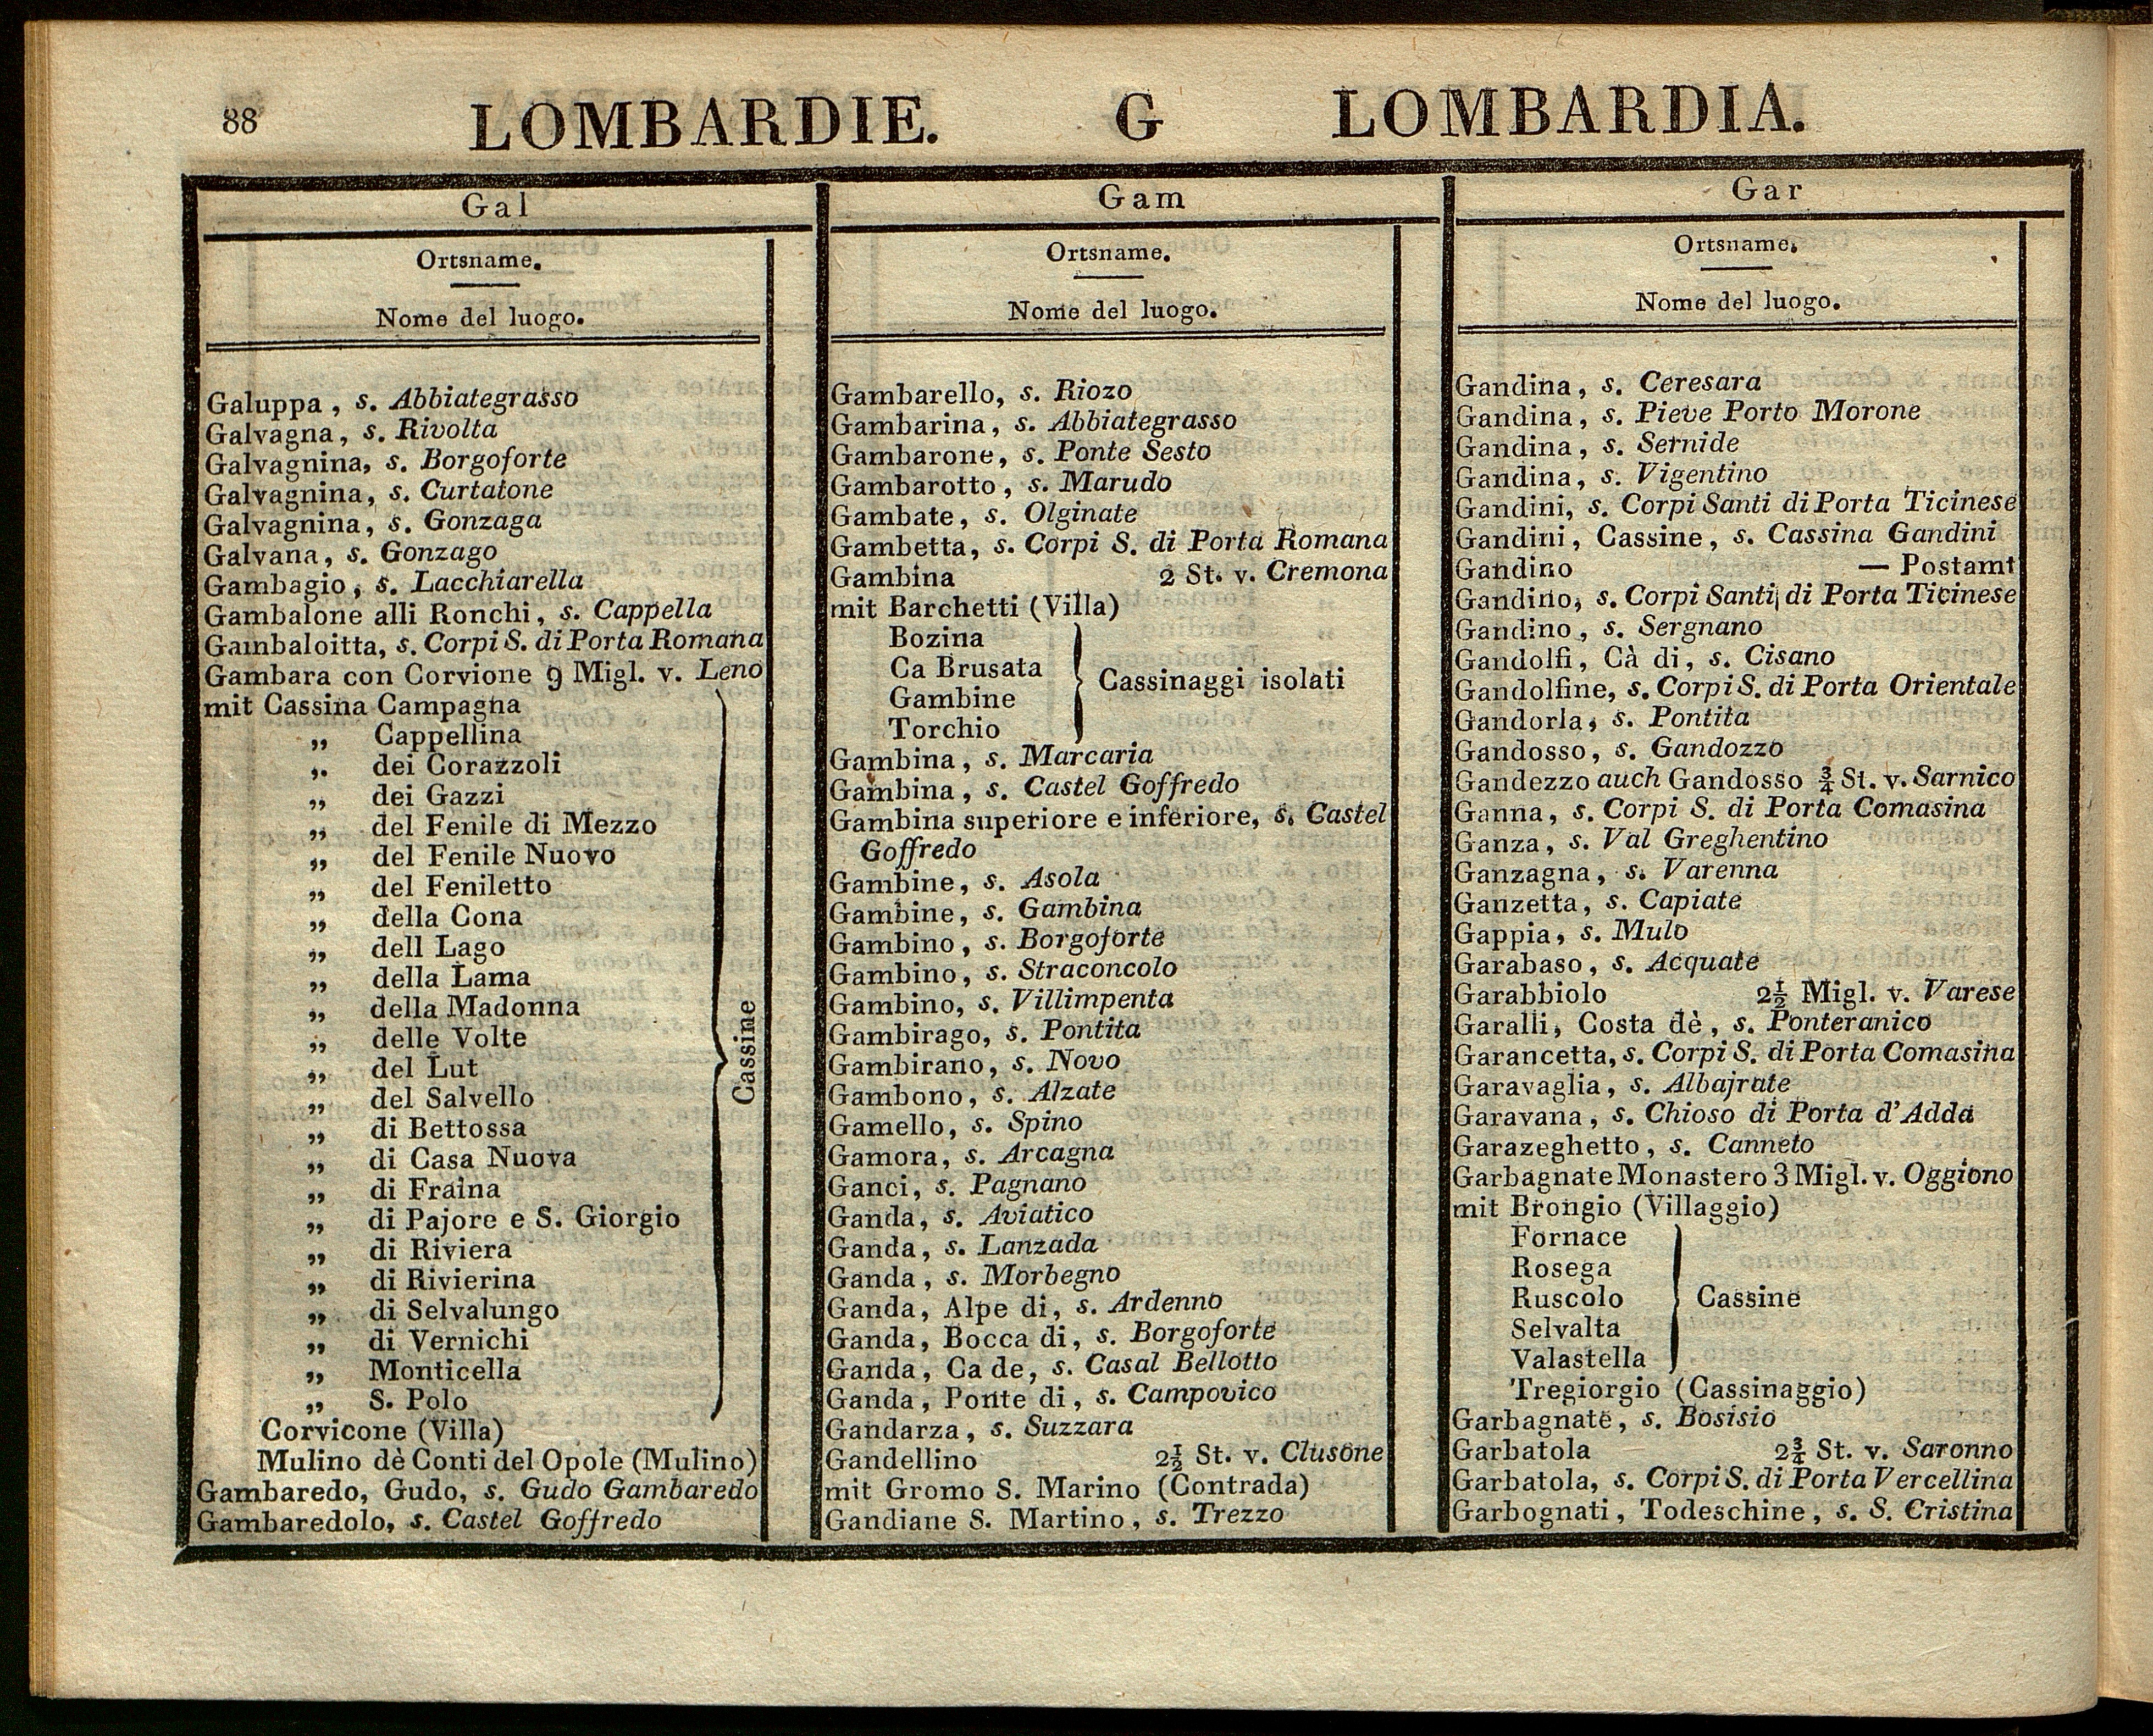 88
LOMBARDIE. G LOMBARDIA.
Gal
Ortsname.
Nome del luogo.
Galuppa, s. Abbiategrasso
Galvagna, s. Rivolta
Galvagnina, s. Borgoforte
Galvagnina, s. Curtatone
Galvagnina, s. Gonzaga
Galvana, s. Gonzago
Gambagio, s. Lacchiarella
Gambalone alli Ronchi, s. Cappella
Gambaloitta, s. Corpi S. di Porta Romana
Gambara con Corvione 9 Migl. v. Leno
mit Cassina Campagna
„ Cappellina
„ dei Corazzoli
„ dei Gazzi
„ del Fenile di Mezzo
„ del Fenile Nuovo
„ del Feniletto
„ della Cona
„ dell Lago
„ della Lama
„ della Madonna
„ delle Volte
„ del Lut
„ del Salvello
„ di Bettossa
„ di Casa Nuova
„ di Fraina
„ di Pajore e S. Giorgio
„ di Riviera
„ di Rivierina
„ di Selvalungo
„ di Vernichi
„ Monticella
„ S. Polo
Cassine
Corvicone (Villa)
Mulino dè Conti del Opole (Mulino)
Gambaredo, Gudo, s. Gudo Gambaredo
Gambaredolo, s. Castel Goffredo
Gam
Ortsname.
Nome del luogo.
Gambarello, s. Riozo
Gambarina, s. Abbiategrasso
Gambarone, s. Ponte Sesto
Gambarotto, s. Marudo
Gambate, s. Olginate
Gambetta, s. Corpi S. di Porta Romana
Gambina 2 St. v. Cremona
mit Barchetti (Villa)
Bozina
Ca Brusata
Gambine
Torchio
Cassinaggi isolati
Gambina, s. Marcaria
Gambina, s. Castel Goffredo
Gambina superiore e inferiore, s. Castel
Goffredo
Gambine, s. Asola
Gambine, s. Gambina
Gambino, s. Borgoforte
Gambino, s. Straconcolo
Gambino, s. Villimpenta
Gambirago, s. Pontita
Gambirano, s. Novo
Gambono, s. Alzate
Gamello, s. Spino
Gamora, s. Arcagna
Ganci, s. Pagnano
Ganda, s. Aviatico
Ganda, s. Lanzada
Ganda, s. Morbegno
Ganda, Alpe di, s. Ardenno
Ganda, Bocca di, s. Borgoforte
Ganda, Ca de, s. Casal Bellotto
Ganda, Ponte di, s. Campovico
Gandarza, s. Suzzara
Gandellino 2½ St. v. Clusone
mit Gromo S. Marino (Contrada)
Gandiane S. Martino, s. Trezzo
Gar
Ortsname.
Nome del luogo.
Gandina, s. Ceresara
Gandina, s. Pieve Porto Morone
Gandina, s. Sernide
Gandina, s. Vigentino
Gandini, s. Corpi Santi di Porta Ticinese
Gandini, Cassine, s. Cassina Gandini
Gandino — Postamt
Gandino, s. Corpi Santi di Porta Ticinese
Gandino, s. Sergnano
Gandolfi, Cà di, s. Cisano
Gandolfine, s. Corpi S. di Porta Orientale
Gandorla, s. Pontita
Gandosso, s. Gandozzo
Gandezzo auch Gandosso ¾ St. v. Sarnico
Ganna, s. Corpi S. di Porta Comasina
Ganza, s. Val Greghentino
Ganzagna, s. Varenna
Ganzetta, s. Capiate
Gappia, s. Mulo
Garabaso, s. Acquate
Garabbiolo 2½ Migl. v. Varese
Garalli, Costa dè, s. Ponteranico
Garancetta, s. Corpi S. di Porta Comasina
Garavaglia, s. Albajrate
Garavana, s. Chioso di Porta d'Adda
Garazeghetto, s. Canneto
Garbagnate Monastero 3 Migl. v. Oggiono
mit Brongio (Villaggio)
Fornace
Rosega
Ruscolo
Selvalta
Valastella
Cassine
Tregiorgio (Cassinaggio)
Garbagnate, s. Bosisio
Garbatola 2¾ St. v. Saronno
Garbatola, s. Corpi S. di Porta Vercellina
Garbognati, Todeschine, s. S. Cristina